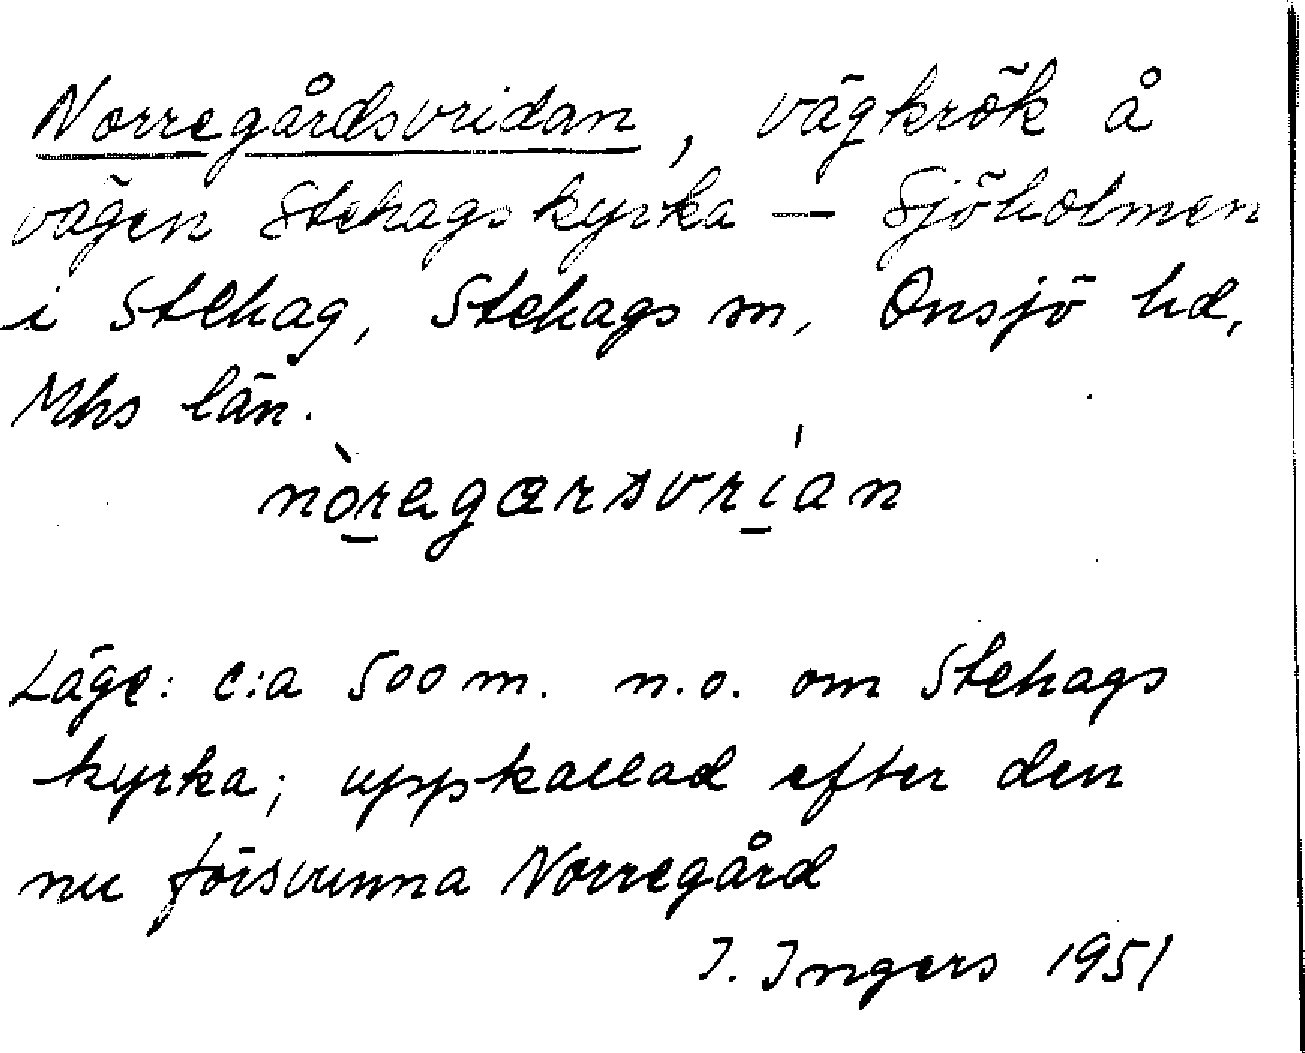 Norregårdsvridan, vägkrök å
vägen Stehags kyrka — Sjöholmen
i Stehag, Stehags sn, Onsjö hd,
Mhs län.
nòregarsvrían
Läge: c:a 500 m. n.o. om Stehags
kyrka; uppkallad efter den
nu försvunna Norregård
I. Ingers 1951